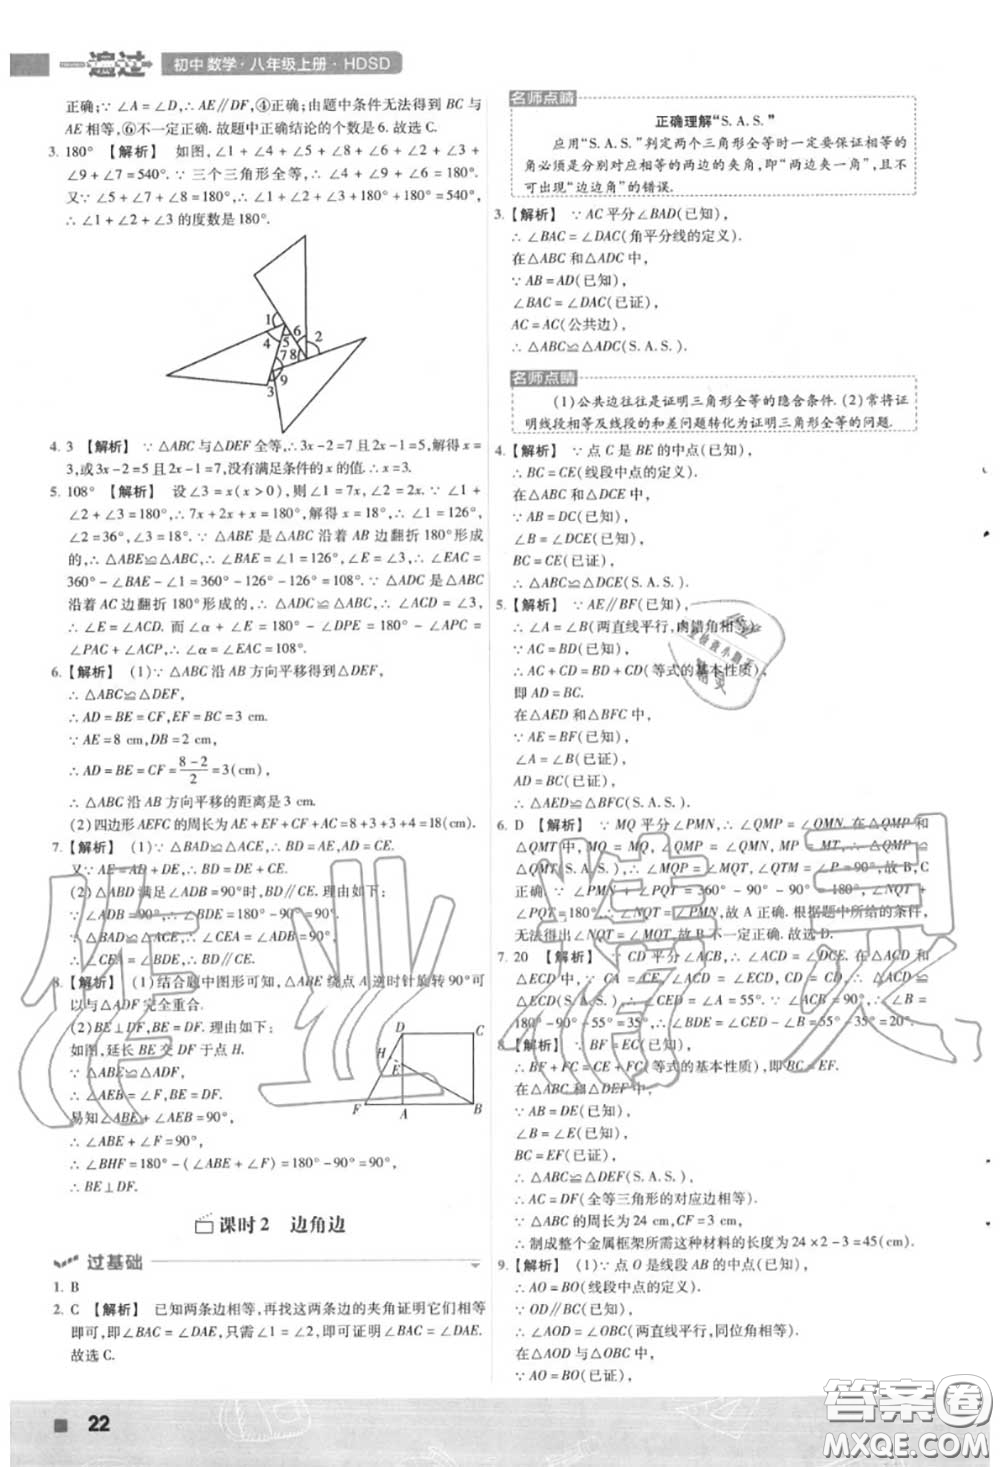 一遍过 初中 数学·八年级上册·HDSD
正确;∵ ∠A = ∠D,∴ AE∥DF,④正确;由题中条件无法得到 BC 与
AE 相等,⑥不一定正确. 故题中正确结论的个数是 6. 故选 C.
3. 180° 【解析】 如图,∠1 + ∠4 + ∠5 + ∠8 + ∠6 + ∠2 + ∠3 +
∠9 + ∠7 = 540°. ∵ 三个三角形全等,∴ ∠4 + ∠9 + ∠6 = 180°.
又∵ ∠5 + ∠7 + ∠8 = 180°,∴ ∠1 + ∠2 + ∠3 + 180° + 180° = 540°,
∴ ∠1 + ∠2 + ∠3 的度数是 180°.
1
6
2
4
5
7
8
9
3
4. 3 【解析】 ∵ △ABC 与△DEF 全等,∴ 3x - 2 = 7 且 2x - 1 = 5,解得 x =
3,或 3x - 2 = 5 且 2x - 1 = 7,没有满足条件的 x 的值. ∴ x = 3.
5. 108° 【解析】 设∠3 = x(x > 0),则∠1 = 7x,∠2 = 2x. ∵ ∠1 +
∠2 + ∠3 = 180°,∴ 7x + 2x + x = 180°,解得 x = 18°,∴ ∠1 = 126°,
∠2 = 36°,∠3 = 18°. ∵ △ABE 是△ABC 沿着 AB 边翻折 180°形成
的,∴ △ABE≌△ABC,∴ ∠BAE = ∠1 = 126°,∠E = ∠3,∴ ∠EAC =
360° - ∠BAE - ∠1 = 360° - 126° - 126° = 108°. ∵ △ACD 是△ABC
沿着 AC 边翻折 180°形成的,∴ △ADC≌△ABC,∴ ∠ACD = ∠3,
∴ ∠E = ∠ACD. 而∠α + ∠E = 180° - ∠DPE = 180° - ∠APC =
∠PAC + ∠ACP,∴ ∠α = ∠EAC = 108°.
6. 【解析】 (1)∵ △ABC 沿 AB 方向平移得到△DEF,
∴ △ABC≌△DEF,
∴ AD = BE = CF,EF = BC = 3 cm.
∵ AE = 8 cm,DB = 2 cm,
∴ AD = BE = CF = (8 - 2)/2 = 3(cm),
∴ △ABC 沿 AB 方向平移的距离是 3 cm.
(2)四边形 AEFC 的周长为 AE + EF + CF + AC = 8 + 3 + 3 + 4 = 18(cm).
7. 【解析】 (1)∵ △BAD≌△ACE,∴ BD = AE,AD = CE.
又∵ AE = AD + DE,∴ BD = DE + CE.
(2)△ABD 满足∠ADB = 90°时,BD∥CE. 理由如下:
∵ ∠ADB = 90°,∴ ∠BDE = 180° - 90° = 90°.
又∵ △BAD≌△ACE,∴ ∠CEA = ∠ADB = 90°,
∴ ∠CEA = ∠BDE,∴ BD∥CE.
8. 【解析】 (1)结合题中图形可知,△ABE 绕点 A 逆时针旋转 90°可
以与△ADF 完全重合.
(2)BE⊥DF,BE = DF. 理由如下:
如图,延长 BE 交 DF 于点 H.
∵ △ABE≌△ADF,
∴ ∠AEB = ∠F,BE = DF.
易知∠ABE + ∠AEB = 90°,
∴ ∠ABE + ∠F = 90°,
∴ ∠BHF = 180° - (∠ABE + ∠F) = 90°,
∴ BE⊥DF.
D
C
H
E
F
A
B
课时 2 边角边
过基础
1. B
2. C 【解析】 已知两条边相等,再找这两条边的夹角证明它们相等
即可,即∠BAC = ∠DAE,只需∠1 = ∠2,即可证明∠BAC = ∠DAE.
故选 C.
名师点睛
正确理解“S. A. S.”
应用“S. A. S.”判定两个三角形全等时一定要保证相等的
角必须是分别对应相等的两边的夹角,即“两边夹一角”,且不
可出现“边边角”的错误.
3. 【解析】 ∵ AC 平分∠BAD(已知),
∴ ∠BAC = ∠DAC(角平分线的定义).
在△ABC 和△ADC 中,
∵ AB = AD(已知),
∠BAC = ∠DAC(已证),
AC = AC(公共边),
∴ △ABC≌△ADC(S. A. S.).
名师点睛
(1)公共边往往是证明三角形全等的隐含条件. (2)常将证
明线段相等及线段的和差问题转化为证明三角形全等的问题.
4. 【解析】 ∵ 点 C 是 BE 的中点(已知),
∴ BC = CE(线段中点的定义).
在△ABC 和△DCE 中,
∵ AB = DC(已知),
∠B = ∠DCE(已知),
BC = CE(已证),
∴ △ABC≌△DCE(S. A. S.).
5. 【解析】 ∵ AE∥BF(已知),
∴ ∠A = ∠B(两直线平行,内错角相等).
∵ AC = BD(已知),
∴ AC + CD = BD + CD(等式的基本性质),
即 AD = BC.
在△AED 和△BFC 中,
∵ AE = BF(已知),
∠A = ∠B(已证),
AD = BC(已证),
∴ △AED≌△BFC(S. A. S.).
6. D 【解析】 ∵ MQ 平分∠PMN,∴ ∠QMP = ∠QMN. 在△QMP 和
△QMT 中,MQ = MQ,∠QMP = ∠QMN,MP = MT,∴ △QMP≌
△QMT(S. A. S.),∴ ∠MQP = ∠MQT,∠QTM = ∠P = 90°,故 B,C
正确. ∵ ∠PMN + ∠PQT = 360° - 90° - 90° = 180°,∠NQT +
∠PQT = 180°,∴ ∠NQT = ∠PMN,故 A 正确. 根据题中所给的条件,
无法得出∠NQT = ∠MQT,故 D 不一定正确. 故选 D.
7. 20 【解析】 ∵ CD 平分∠ACB,∴ ∠ACD = ∠DCE. 在△ACD 和
△ECD 中,∵ CA = CE,∠ACD = ∠ECD,CD = CD,∴ △ACD≌
△ECD(S. A. S.),∴ ∠CED = ∠A = 55°. ∵ ∠ACB = 90°,∴ ∠B =
180° - 90° - 55° = 35°,∴ ∠BDE = ∠CED - ∠B = 55° - 35° = 20°.
8. 【解析】 ∵ BF = EC(已知),
∴ BF + FC = CE + FC(等式的基本性质),即 BC = EF.
在△ABC 和△DEF 中,
∵ AB = DE(已知),
∠B = ∠E(已知),
BC = EF(已证),
∴ △ABC≌△DEF(S. A. S.),
∴ AC = DF(全等三角形的对应边相等).
∵ △ABC 的周长为 24 cm,CF = 3 cm,
∴ 制成整个金属框架所需这种材料的长度为 24 × 2 - 3 = 45(cm).
9. 【解析】 (1)∵ 点 O 是线段 AB 的中点(已知),
∴ AO = BO(线段中点的定义).
∵ OD∥BC(已知),
∴ ∠AOD = ∠OBC(两直线平行,同位角相等).
在△AOD 与△OBC 中,
∵ AO = BO(已证),
22
作业精灵
答案圈
MXQE.COM